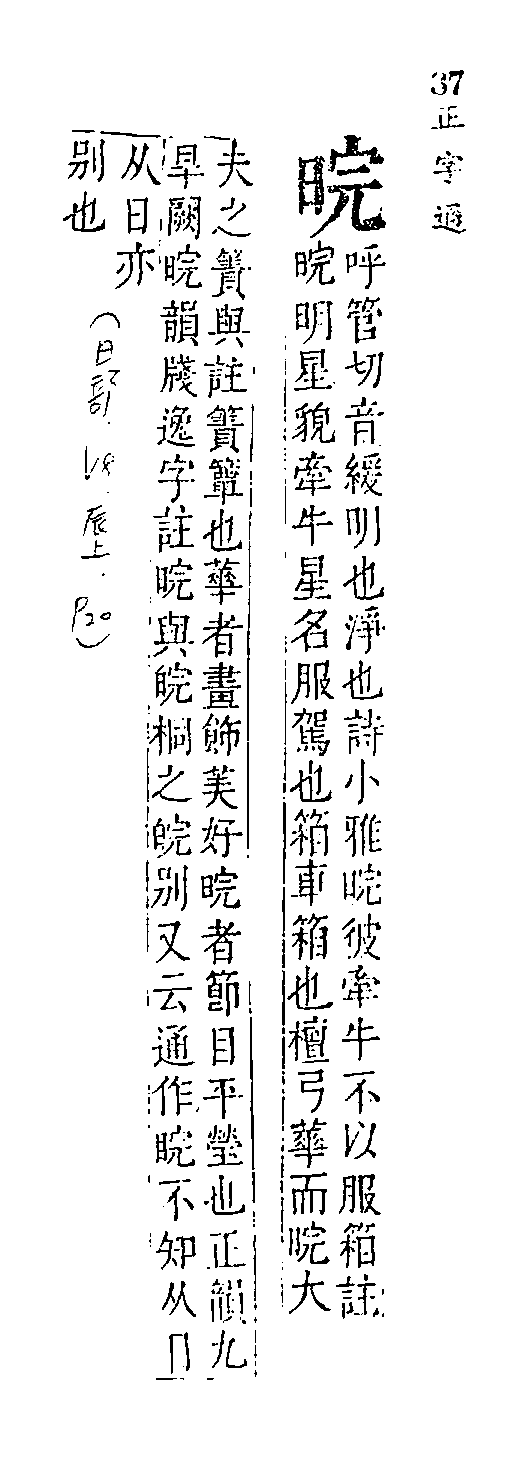 37 正字通
睆
呼管切音緩明也淨也詩小雅睆彼牽牛不以服箱註
睆明星貌牽牛星名服駕也箱車箱也檀弓華而睆大
夫之簀與註簀簟也華者畫飾美好睆者節目平瑩也正韻九
旱闕睆韻牋逸字註晥與皖桐之皖别又云通作晥不知从目
从日亦
别也
(日部. 辰上. P20)